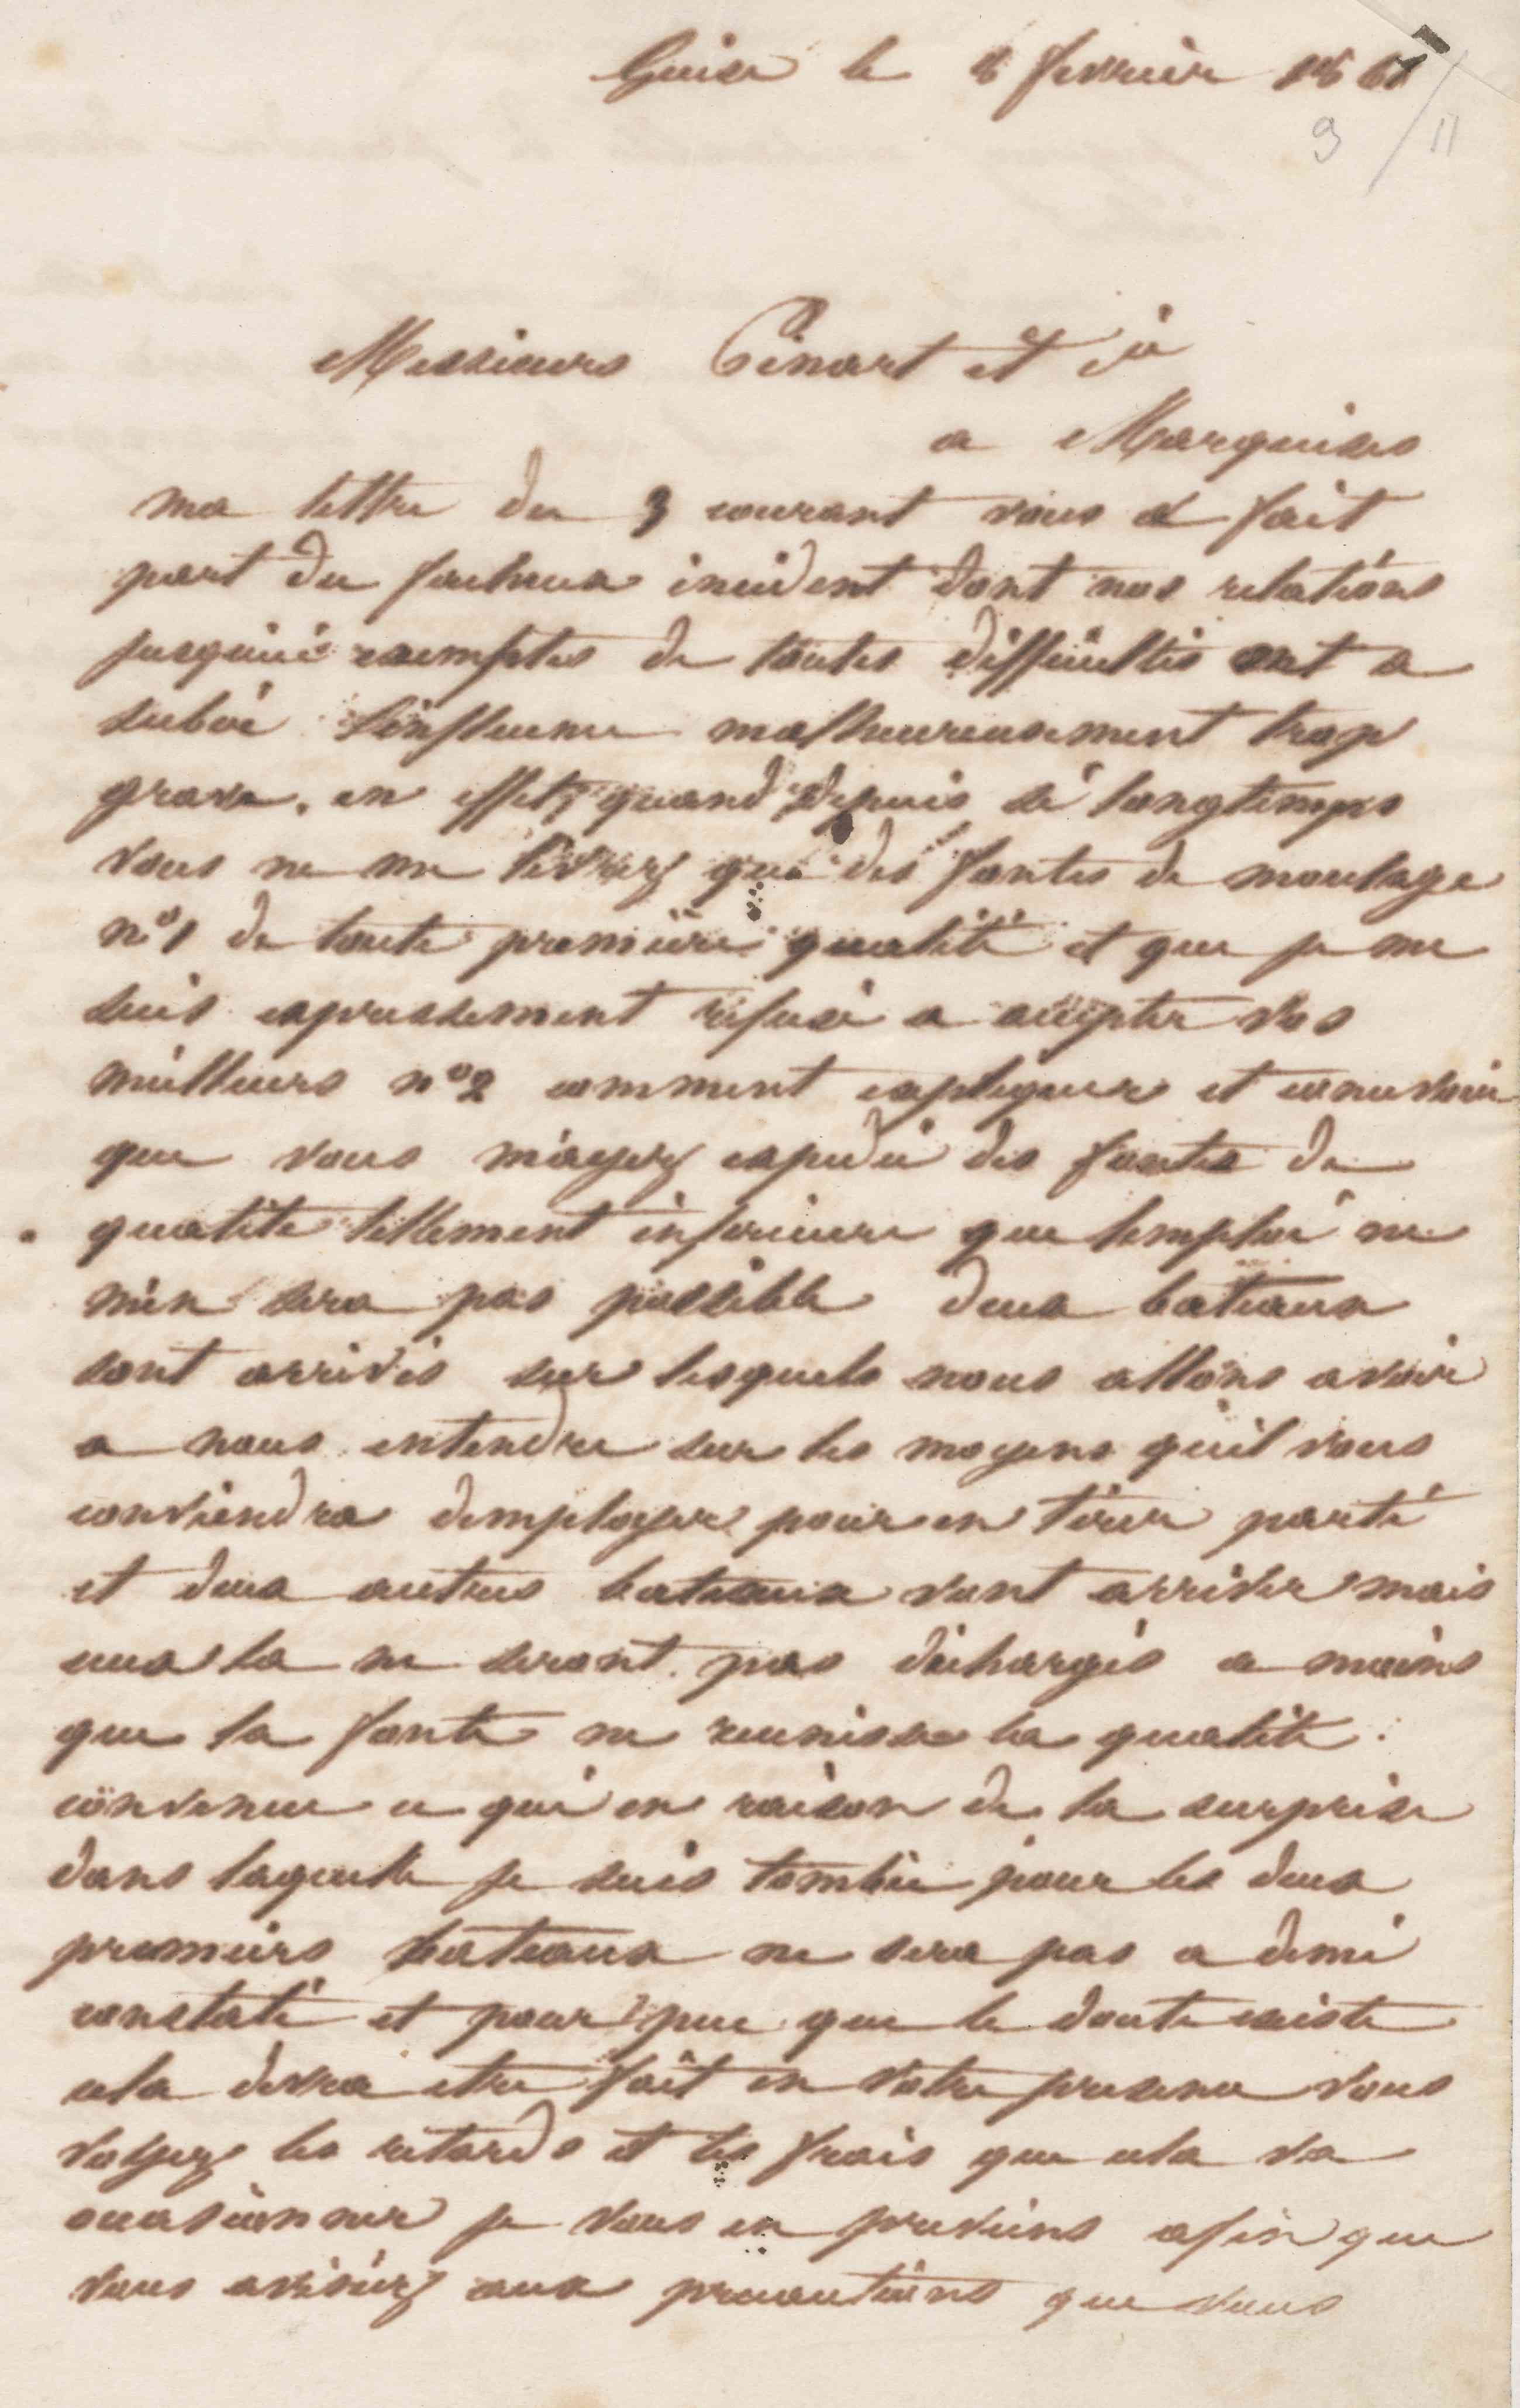 Guise le 8 fevrier 1861
9 / 11
Messieurs Pinart et Cie
a Marquises
ma lettre du 3 courant vous a fait
part du facheux incident dont nos relations
jusquici exemptes de toutes difficultés ont a
subir linfluence malheureusement trop
grave. en effet, quand depuis si longtemps
vous ne me livrez que des fontes de moulage
n°1 de toute première qualité et que je me
suis expressement refusé a accepter vos
meilleurs n°2 comment expliquer et concevoir
que vous m'ayez expedié des fontes de
qualité tellement inferieure que lemploi ne
m'en sera pas possible deux bateaux
sont arrivés sur lesquels nous allons avoir
a nous entendre sur les moyens qu'il vous
conviendra demployer pour en tirer parti
et deux autres bateaux vont arriver mais
ceux la ne seront pas déchargés a moins
que la fonte ne reunisse la qualité
convenue ce qui en raison de la surprise
dans laquelle je suis tombée pour les deux
premiers bateaux ne sera pas a demi
constaté et pour peu que le doute existe
cela devra etre fait en votre presence vous
voyez les retards et les frais que cela va
occasionner je vous en previens afin que
vous avisiez aux precautions que vous